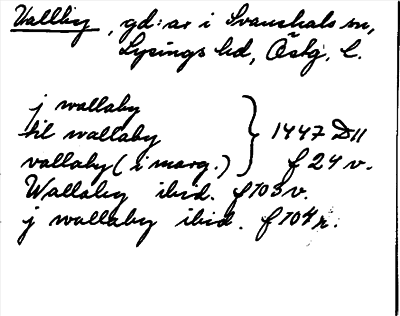 Vallby, gd:ar i Svanshals sn,
Lysings hd, Östg. l.
j wallaby
til wallaby } 1447 D11
vallaby (i marg.) f 24 v.
Wallaby ibid. f 103 v.
j wallaby ibid. f 104 r.